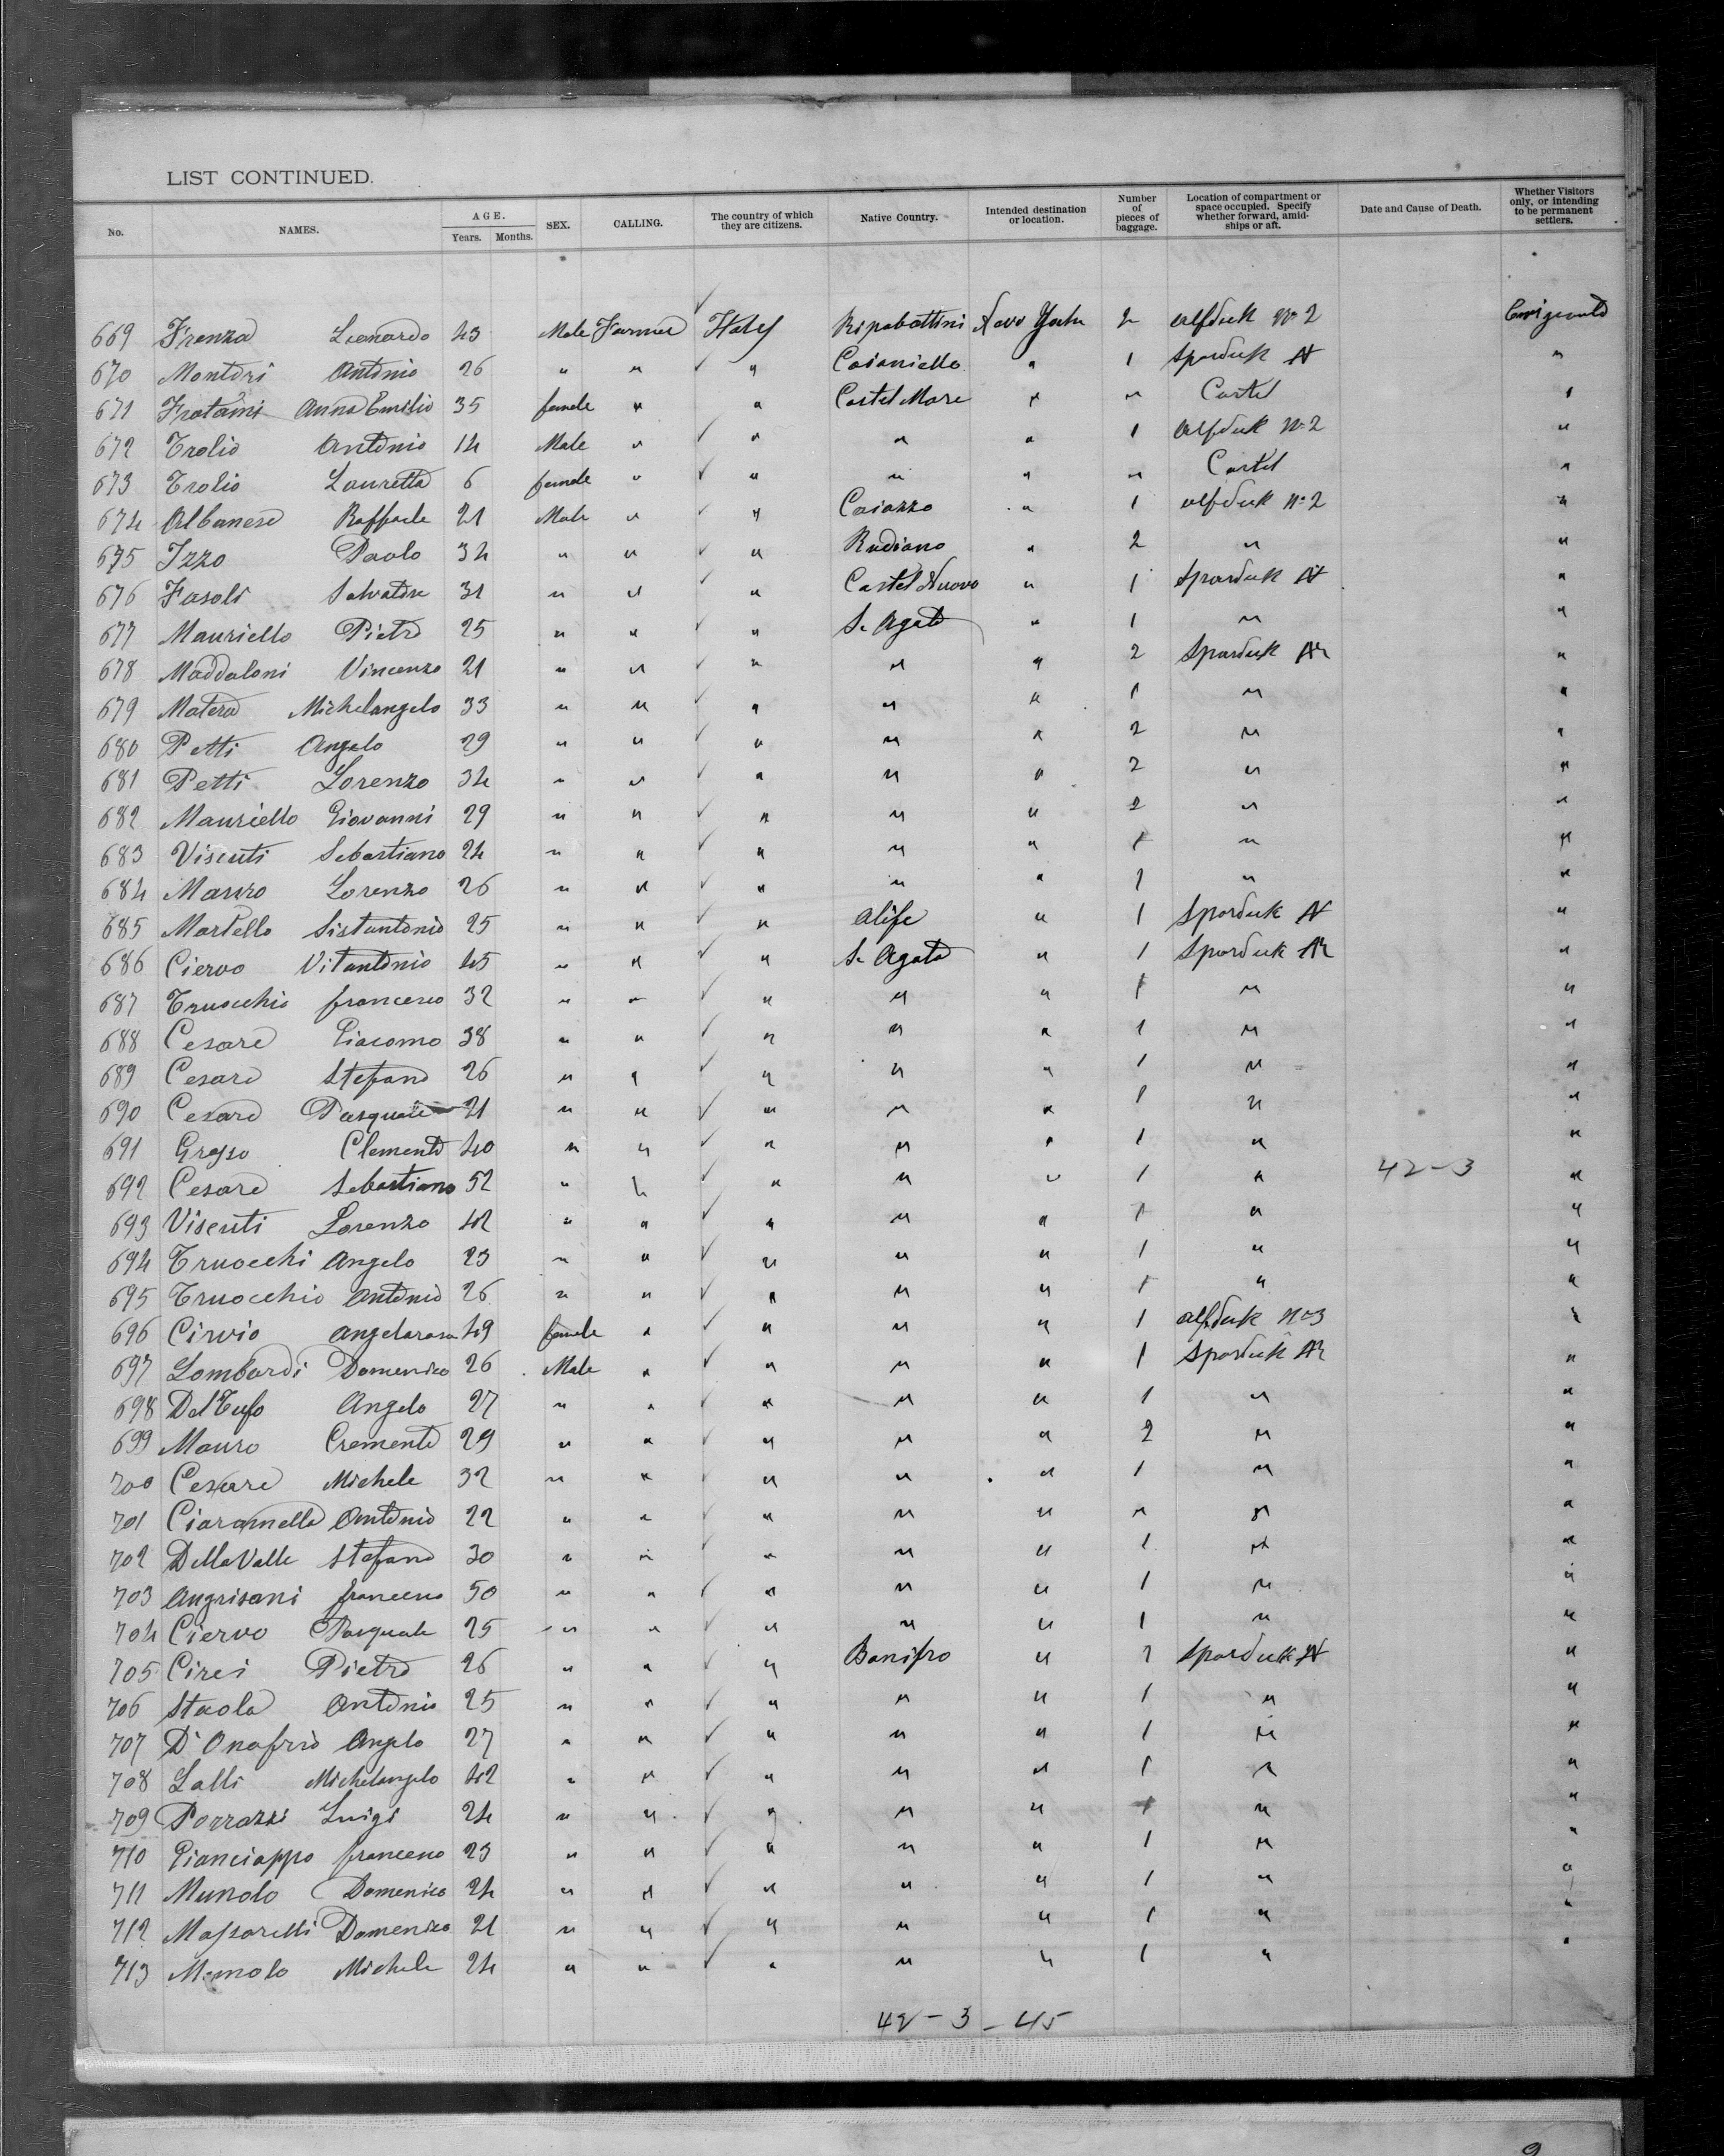 LIST CONTINUED.
No. NAMES. AGE. Years. Months. SEX. CALLING. The country of which they are citizens. Native Country. Intended destination or location. Number of pieces of baggage. Location of compartment or space occupied. Specify whether forward, amidships or aft. Date and Cause of Death. Whether Visitors only, or intending to be permanent settlers.
669 Leonardo 43 Male Farmer ✓ Italy Ripabottini New York 2 alfdeck No 2
670 Montori Antonio 26 " " ✓ " Caianiello " 1 Spardeck N "
671 Anna Emilia 35 female " " Castel Mare " " Castel "
672 Trolio Antonio 14 Male " ✓ " " " 1 alfdeck No 2 "
673 Trolio Lauretta 6 female " ✓ " " " " Castel "
674 Albanese Raffaele 21 Male " ✓ " Caiazzo " 1 alfdeck No 2 "
675 Izzo Paolo 34 " " ✓ " Rudiano " 2 " "
676 Fasoli Salvatore 31 " " ✓ " Castel Nuovo " 1 Spardeck N "
677 Mauriello Pietro 25 " " ✓ " S. Agata " 1 " "
678 Maddaloni Vincenzo 21 " " ✓ " " " 2 Spardeck "
679 Matera Michelangelo 33 " " ✓ " " " 1 " "
680 Petti Angelo 29 " " ✓ " " " 2 " "
681 Petti Lorenzo 34 " " ✓ " " " 2 " "
682 Mauriello Giovanni 29 " " ✓ " " " 2 " "
683 Viscuti Sebastiano 24 " " ✓ " " " 1 " "
684 Lorenzo 26 " " ✓ " " " 1 " "
685 Martello Sistantonio 25 " " ✓ " Alife " 1 Spardeck N "
686 Ciervo Vitantonio 45 " " ✓ " S. Agata " 1 Spardeck "
687 Truocchio francesco 32 " " ✓ " " " 1 " "
688 Cesare Giacomo 38 " " ✓ " " " 1 " "
689 Cesare Stefano 26 " " ✓ " " " 1 " "
690 Cesare Pasquale 21 " " ✓ " " " 1 " "
691 Grasso Clemente 40 " " ✓ " " " 1 " "
692 Cesare Sebastiano 52 " " ✓ " " " 1 " 42-3 "
693 Viscuti Lorenzo 42 " " ✓ " " " 1 " "
694 Truocchi Angelo 23 " " ✓ " " " 1 " "
695 Truocchio Antonio 26 " " ✓ " " " 1 " "
696 Cirvio Angelarosa 49 female " ✓ " " " 1 alfdeck No 3 "
697 Lombardi Domenico 26 Male " ✓ " " " 1 Spardeck "
698 Del Tufo Angelo 27 " " ✓ " " " 1 " "
699 Mauro Cremente 29 " " ✓ " " " 2 " "
700 Cesare Michele 32 " " ✓ " " " 1 " "
701 Ciaramella Antonio 22 " " ✓ " " " " " "
702 Della Valle Stefano 30 " " ✓ " " " 1 " "
703 Angrisani francesco 50 " " ✓ " " " 1 " "
704 Ciervo Pasquale 25 " " ✓ " " " 1 " "
705 Circi Pietro 26 " " ✓ " Bonifro " 1 Spardeck N "
706 Antonio 25 " " ✓ " " " 1 " "
707 D'Onofrio Angelo 27 " " ✓ " " " 1 " "
708 Lalli Michelangelo 42 " " ✓ " " " 1 " "
709 Porrazzi Luigi 24 " " ✓ " " " 1 " "
710 Gianciappo francesco 23 " " ✓ " " " 1 " "
711 Munolo Domenico 24 " " ✓ " " " 1 " "
712 Massarelli Domenico 21 " " ✓ " " " 1 " "
713 Michele 24 " " ✓ " " " 1 " "
42-3-45
9